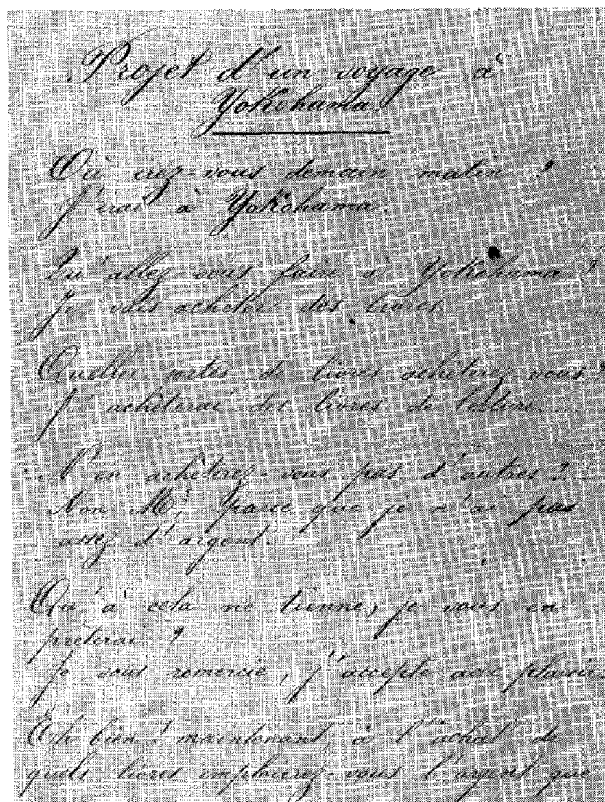 Projet d'un voyage à
Yokohama
Où irez-vous demain matin ?
J'irai à Yokohama.
Qu'allez vous faire à Yokohama ?
Je vais acheter des livres.
Quelles sortes de livres achèterez vous ?
J'achèterai des livres de lecture.
N'en achèterez-vous pas d'autres ?
Non Mr, parce que je n'ai pas
assez d'argent.
Qu'à cela ne tienne, je vous en
prêterai ?
Je vous remercie, j'accepte avec plaisir.
Eh bien ! maintenant, à l'achat de
quels livres emploierez-vous l'argent que